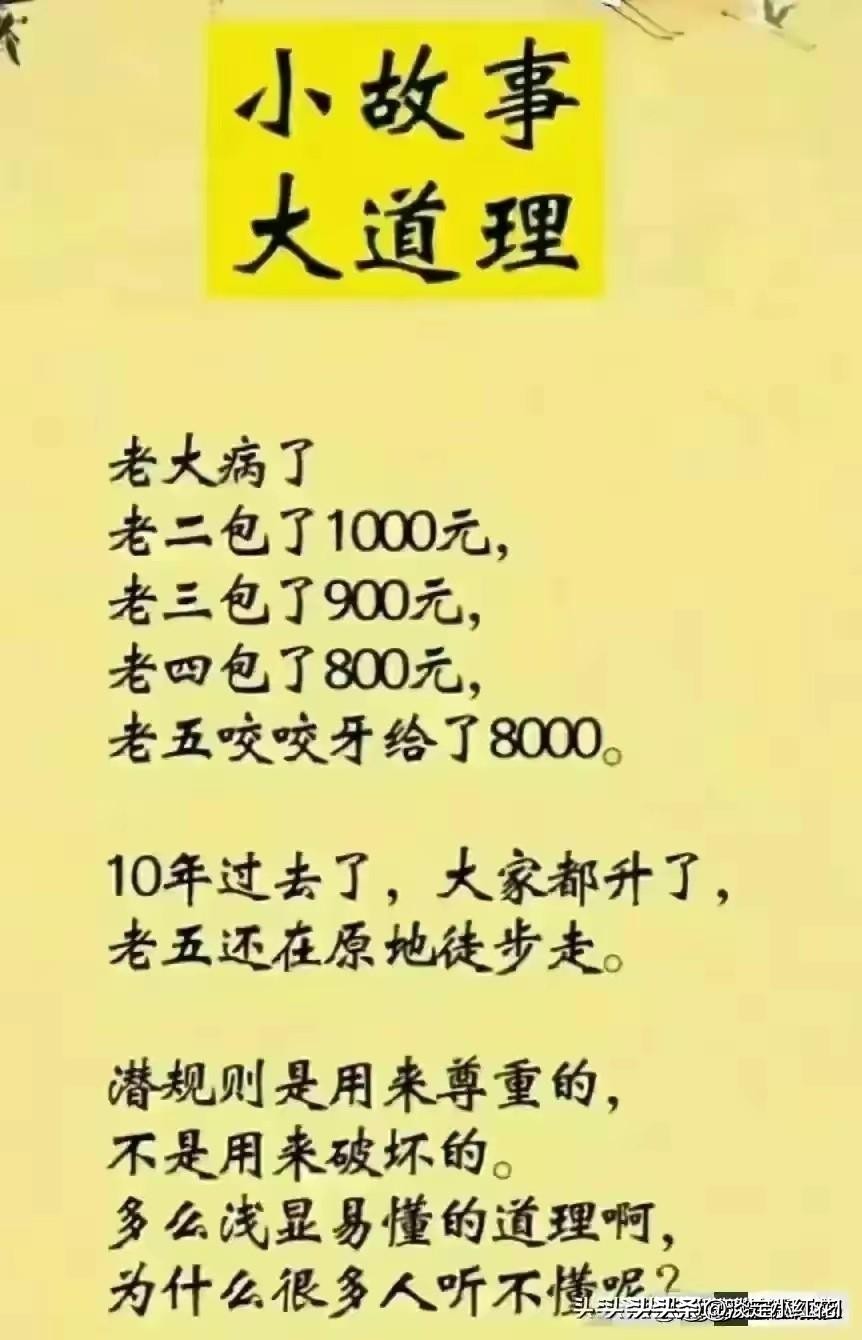 小故事
大道理
老大病了
老二包了1000元,
老三包了900元,
老四包了800元,
老五咬咬牙给了8000。
10年过去了，大家都升了,
老五还在原地徒步走。
潜规则是用来尊重的,
不是用来破坏的。
多么浅显易懂的道理啊,
为什么很多人听不懂呢?